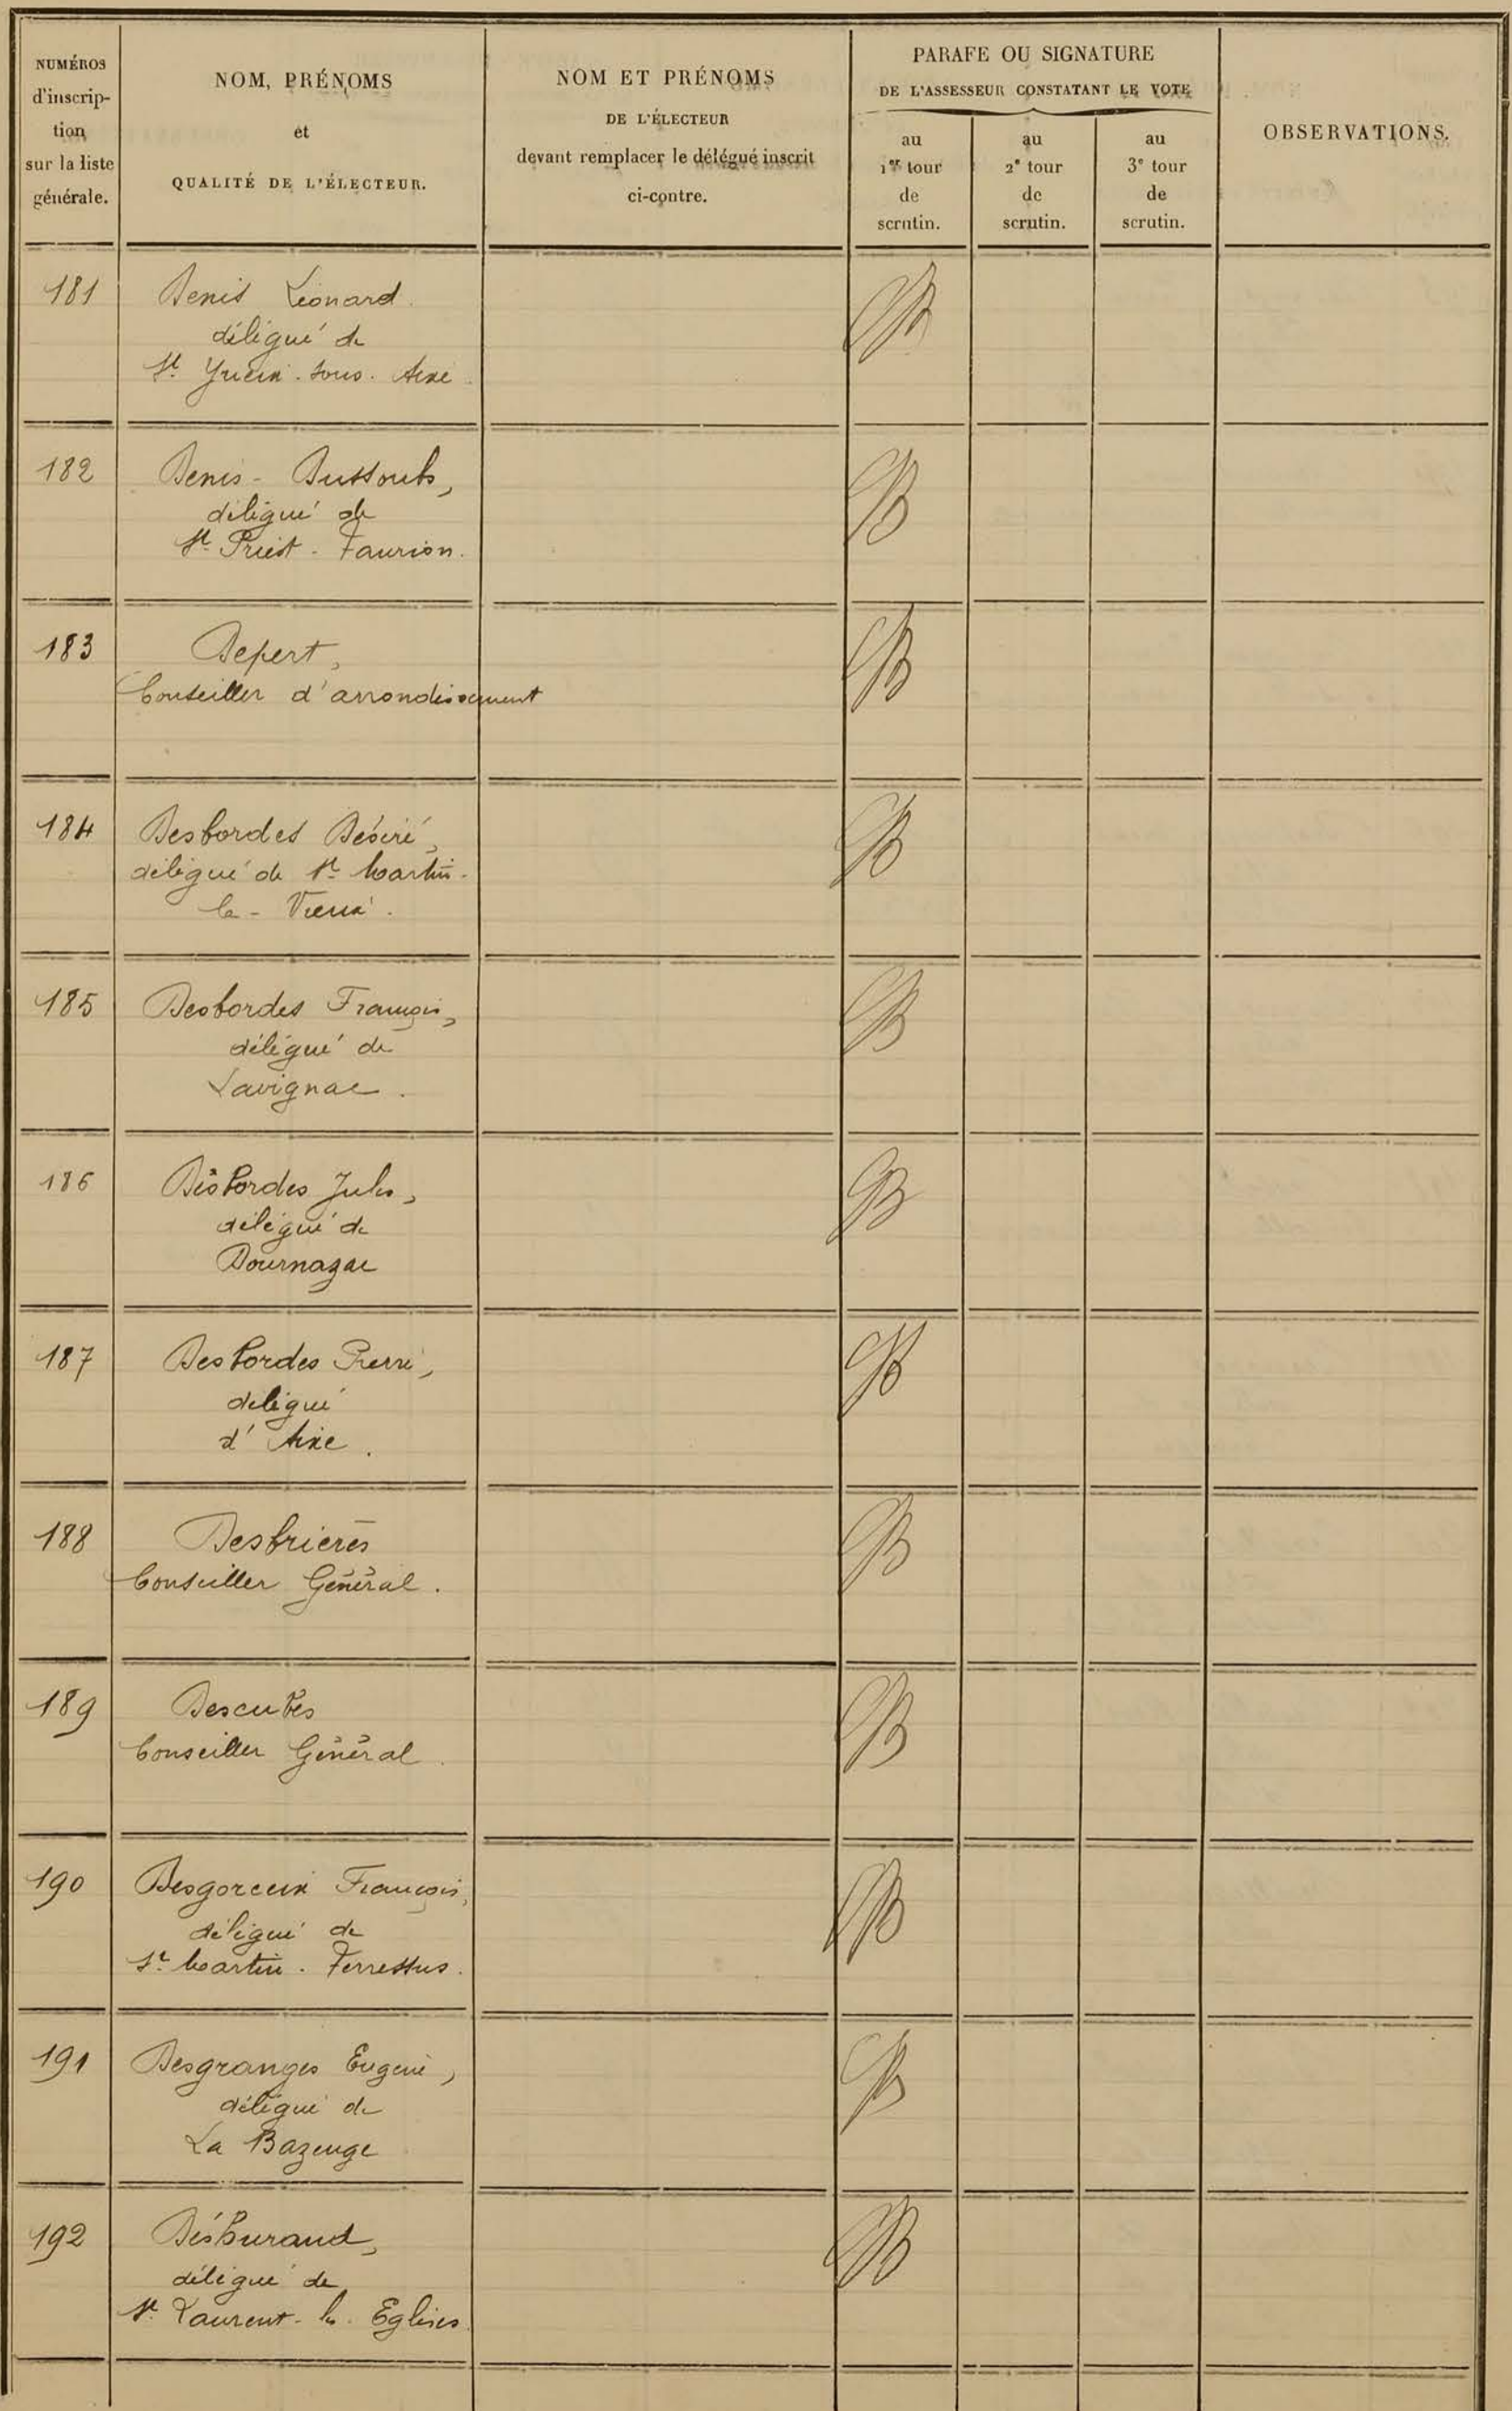 NUMÉROS
d'inscrip-
tion
sur la liste
générale.
NOM, PRÉNOMS
et
QUALITÉ DE L'ÉLECTEUR.
NOM ET PRÉNOMS
DE L'ÉLECTEUR
devant remplacer le délégué inscrit
ci-contre.
PARAFE OU SIGNATURE
DE L'ASSESSEUR CONSTATANT LE VOTE
au
1er tour
de
scrutin.
au
2e tour
de
scrutin.
au
3e tour
de
scrutin.
OBSERVATIONS.
181
Denis Léonard
délégué de
St Yrieix. sous. Aixe
182
Denis - Dussoubs,
délégué de
St Priest - Taurion.
183
Depert,
Conseiller d'arrondissement
184
Desbordes Désiré,
délégué de St Martin-
le - Vieux.
185
Desbordes François,
délégué de
Lavignac.
186
Desbordes Jules,
délégué de
Dournazac
187
Desbordes Pierre,
délégué
d'Aixe.
188
Desbrières
Conseiller Général.
189
Descubes
Conseiller Général
190
Desgorceix François,
délégué de
St Martin. Terressus.
191
Desgranges Eugène,
délégué de
La Bazeuge
192
Déshuraud,
délégué de
St Laurent-les. Eglises